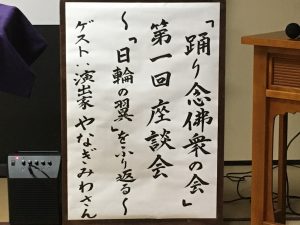 「踊り念佛衆の会」
第一回 座談会
～「日輪の翼」をふり返る～
ゲスト：演出家 やなぎみわさん